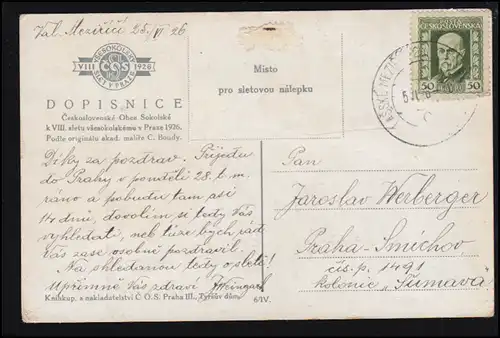 Val. Meziříčí 25./VI 26
VŠESOKOLSKÝ
VIII ČOS 1926
SLET V PRAZE
DOPISNICE
Československé Obce Sokolské
k VIII. sletu všesokolskému v Praze 1926.
Podle originálu akad. malíře C. Boudy.
Díky za pozdrav. Přijedu
do Prahy v pondělí 28. t. m.
ráno a pobudu tam asi
14 dní, dovolím si tedy Vás
vyhledati, neb túze bych rád
Vás zase osobně pozdravil.
Na shledanou tedy o sletě!
Upřímně Vás zdraví
Knihkup. a nakladatelství Č. O. S. Praha III., Tyršův dům.
6/IV.
Místo
pro sletovou nálepku
ČESKOSLOVENSKO
50 50
Pan
Jaroslav Werberger
Praha-Smíchov
čís. p. 1491
kolonie "Šumava"